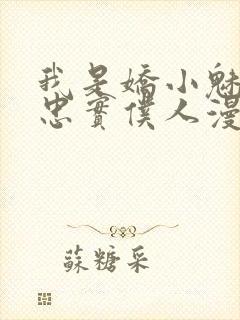 我是嬌小魅
忠實僕人漫
蘇糖采